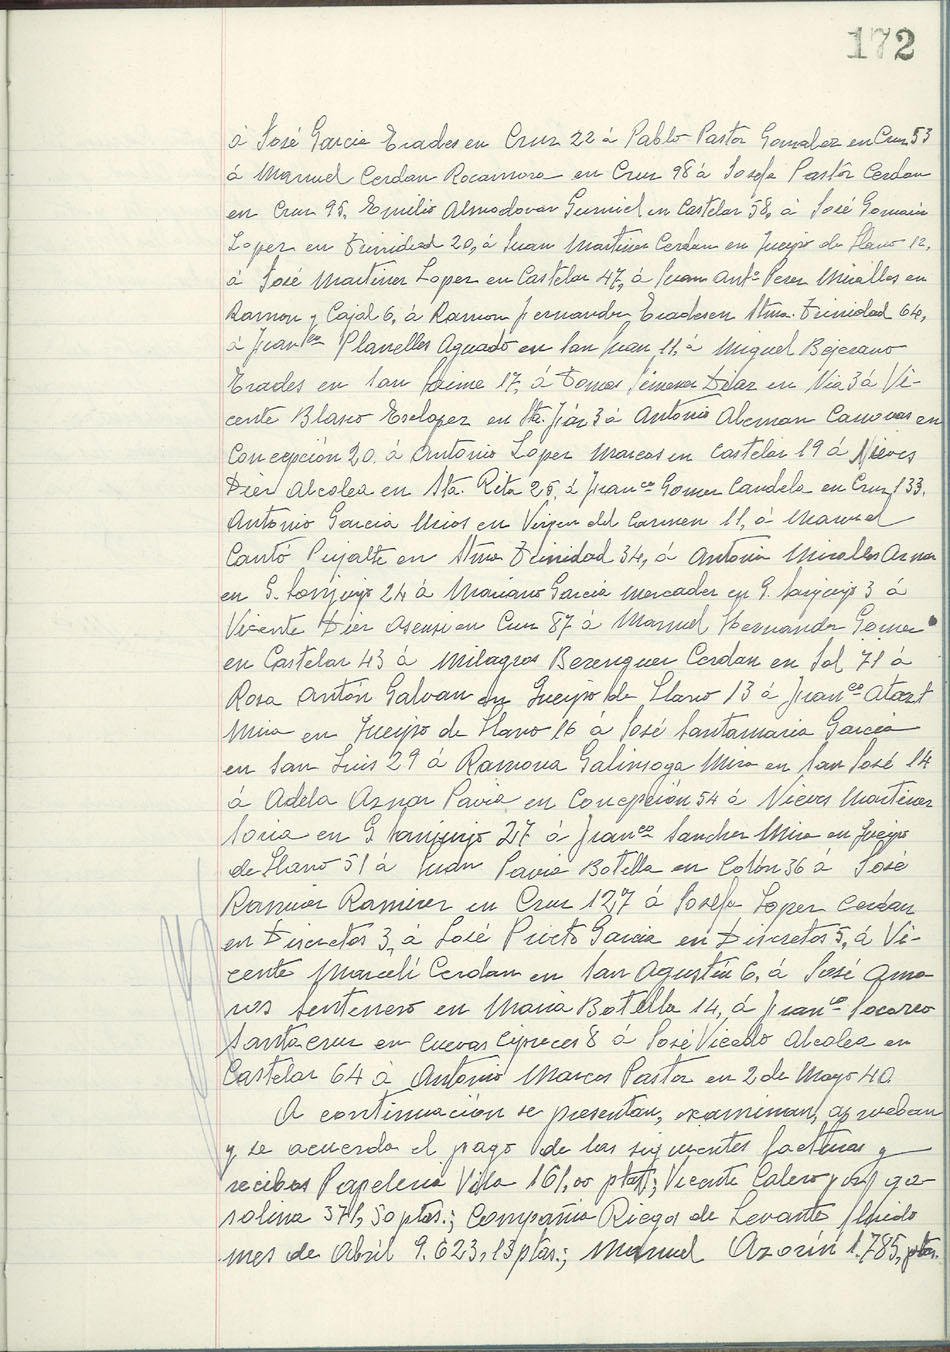 172
á José Garcia Erades en Cruz 22 á Pablo Pastor Gonzalez en Cruz 53
á Manuel Cerdan Rocamora en Cruz 98 á Josefa Pastor Cerdan
en Cruz 95, Emilio Almodovar Gumiel en Castelar 58, á José
Lopez en Trinidad 20, á Juan Martinez Cerdan en Queipo de Llano 12,
á José Martinez Lopez en Castelar 47, á Juan Antº Perez Miralles en
Ramon y Cajal 6, á Ramon Fernandez Erades en Stma. Trinidad 64,
á Franco Planelles Aguado en San Juan 11, á Miguel Bejerano
Erades en San Jaime 17, á Tomas Jimenez Diaz en Via 3 á Vi-
cente Blasco Esclapez en Sta. 3 á Antonio Aleman Canovas en
Concepción 20. á Antonio Lopez Marcos en Castelar 19 á Nieves
Diez Alcolea en Sta. Rita 25, á Franco Gomez Candela en Cruz 133,
Antonio Garcia en Virgen del Carmen 11, á Manuel
Cantó Pujalte en Stma Trinidad 34, á Antonia Miralles Aznar
en G. Sanjurjo 24 á Mariano Garcia Mercader en G. Sanjurjo 3 á
Vicente Diez Asensi en Cruz 87 á Manuel Hernandez Gomez
en Castelar 43 á Milagros Berenguer Cerdan en Sol 71 á
Rosa Antón Galvan en Queipo de Llano 13 á Franco
Mira en Queipo de Llano 16 á José Santamaria Garcia
en San Luis 29 á Ramona Galinsoga Mira en San José 14
á Adela Aznar Pavia en Concepción 54 á Nieves Martinez
Soria en G Sanjurjo 27 á Franco Sanchez Mira en Queipo
de Llano 51 á Juan Pavia Botella en Colón 36 á José
Ramirez Ramirez en Cruz 127 á Josefa Lopez Cerdán
en Discretos 3, á José Prieto Garcia en Discretos 5, á Vi-
cente Marcelí Cerdan en San Agustín 6, á José Amo-
ros Sentenero en Maria Botella 14, á Franco Socorro
Santacruz en Cuevas Cipreces 8 á José Vicedo Alcolea en
Castelar 64 á Antonio Marcos Pastor en 2 de Mayo 40
A continuación se presentan, examinan, aprueban
y se acuerda el pago de las siguientes facturas y
recibos Papeleria Vila 161,00 ptas; Vicente Calero por ga-
solina 371,50 ptas.; Compañia Riegos de Levante fluido
mes de Abril 9.623,13 ptas.; Manuel Azorín 1.785, ptas.